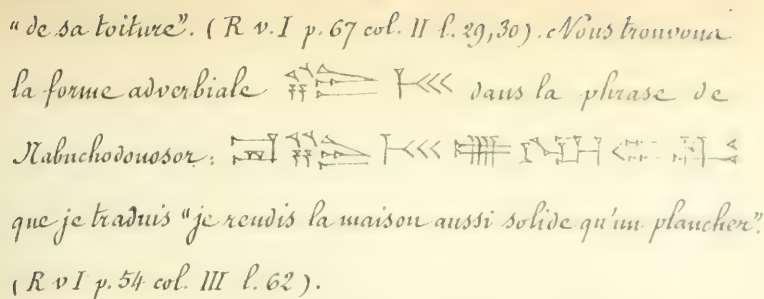 "de sa toiture". (R v. I p. 67 col. II l. 29,30). Nous trouvons
la forme adverbiale dans la phrase de
Nabuchodonosor:
que je traduis "je rendis la maison aussi solide qu'un plancher".
(R v I p. 54 col. III l. 62).